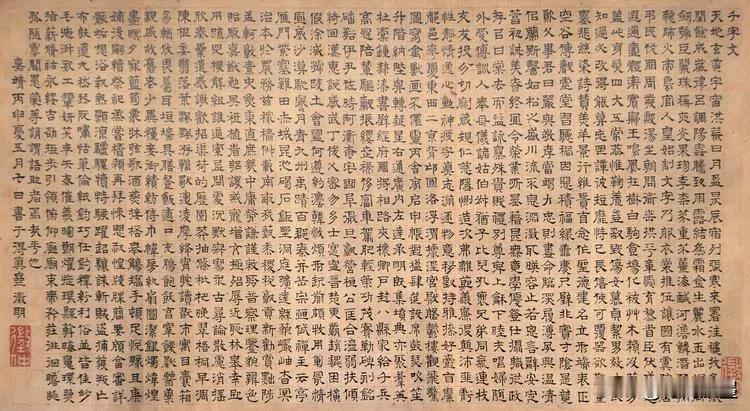 千字文
天地玄黃宇宙洪荒日月盈昃辰宿列張寒來暑往秋收冬藏
閏餘成歲律呂調陽雲騰致雨露結爲霜金生麗水玉出崑岡
劍號巨闕珠稱夜光果珍李柰菜重芥薑海鹹河淡鱗潛羽翔
龍師火帝鳥官人皇始制文字乃服衣裳推位讓國有虞陶唐
弔民伐罪周發殷湯坐朝問道垂拱平章愛育黎首臣伏戎羌
遐邇壹體率賓歸王鳴鳳在樹白駒食場化被草木賴及萬方
蓋此身髮四大五常恭惟鞠養豈敢毀傷女慕貞潔男效才良
知過必改得能莫忘罔談彼短靡恃己長信使可覆器欲難量
墨悲絲染詩讚羔羊景行維賢克念作聖德建名立形端表正
空谷傳聲虛堂習聽禍因惡積福緣善慶尺璧非寶寸陰是競
資父事君曰嚴與敬孝當竭力忠則盡命臨深履薄夙興溫凊
似蘭斯馨如松之盛川流不息淵澄取映容止若思言辭安定
篤初誠美慎終宜令榮業所基籍甚無竟學優登仕攝職從政
存以甘棠去而益詠樂殊貴賤禮別尊卑上和下睦夫唱婦隨
外受傅訓入奉母儀諸姑伯叔猶子比兒孔懷兄弟同氣連枝
交友投分切磨箴規仁慈隱惻造次弗離節義廉退顛沛匪虧
性靜情逸心動神疲守真志滿逐物意移堅持雅操好爵自縻
都邑華夏東西二京背邙面洛浮渭據涇宮殿盤鬱樓觀飛驚
圖寫禽獸畫綵仙靈丙舍傍啟甲帳對楹肆筵設席鼓瑟吹笙
升階納陛弁轉疑星右通廣內左達承明既集墳典亦聚群英
杜稾鍾隸漆書壁經府羅將相路俠槐卿戶封八縣家給千兵
高冠陪輦驅轂振纓世祿侈富車駕肥輕策功茂實勒碑刻銘
磻溪伊尹佐時阿衡奄宅曲阜微旦孰營桓公匡合濟弱扶傾
綺回漢惠說感武丁俊乂密勿多士寔寧晉楚更霸趙魏困橫
假途滅虢踐土會盟何遵約法韓弊煩刑起翦頗牧用軍最精
宣威沙漠馳譽丹青九州禹跡百郡秦并嶽宗恒岱禪主云亭
雁門紫塞雞田赤城昆池碣石鉅野洞庭曠遠綿邈巖岫杳冥
治本於農務茲稼穡俶載南畝我藝黍稷稅熟貢新勸賞黜陟
孟軻敦素史魚秉直庶幾中庸勞謙謹敕聆音察理鑒貌辨色
貽厥嘉猷勉其祗植省躬譏誡寵增抗極殆辱近恥林皋幸即
兩疏見機解組誰逼索居閑處沉默寂寥求古尋論散慮逍遙
欣奏累遣慼謝歡招渠荷的歷園莽抽條枇杷晚翠梧桐早凋
陳根委翳落葉飄颻遊鵾獨運凌摩絳霄耽讀翫市寓目囊箱
易輶攸畏屬耳垣墻具膳飡飯適口充腸飽飫烹宰飢厭糟糠
親戚故舊老少異糧妾御績紡侍巾帷房紈扇圓潔銀燭煒煌
晝眠夕寐藍筍象床弦歌酒讌接杯舉觴矯手頓足悅豫且康
嫡後嗣續祭祀蒸嘗稽顙再拜悚懼恐惶牋牒簡要顧答審詳
骸垢想浴執熱願涼驢騾犢特駭躍超驤誅斬賊盜捕獲叛亡
布射遼丸嵇琴阮嘯恬筆倫紙鈞巧任釣釋紛利俗並皆佳妙
毛施淑姿工顰妍笑年矢每催羲暉朗曜旋璣懸斡晦魄環照
指薪修祜永綏吉劭矩步引領俯仰廊廟束帶矜莊徘徊瞻眺
孤陋寡聞愚蒙等誚謂語助者焉哉乎也
嘉靖丙申夏五月日書于得真齋徵明